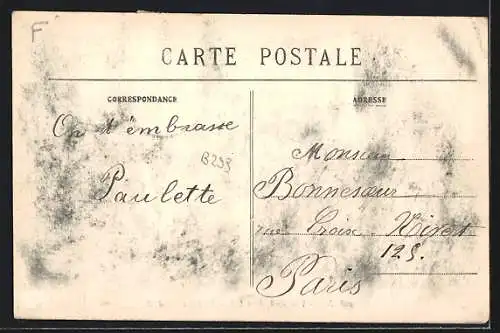 F
CARTE POSTALE
CORRESPONDANCE
On t'embrasse
B293
Paulette
ADRESSE
Monsieur
Bonnesœur
rue Croix-Nivert
125.
Paris